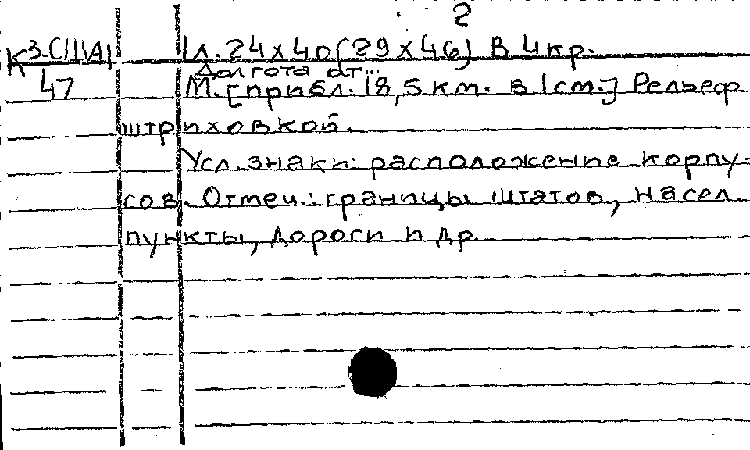 2
К 3-США 1л. 24х40(29х46) В 4 кр.
47 Долгота от...
М. [прибл. 18,5 км. в 1 см.] Рельеф
штриховкой.
Усл. знаки: расположение корпу-
сов. Отмеч.: границы штатов, насел.
пункты, дороги и др.